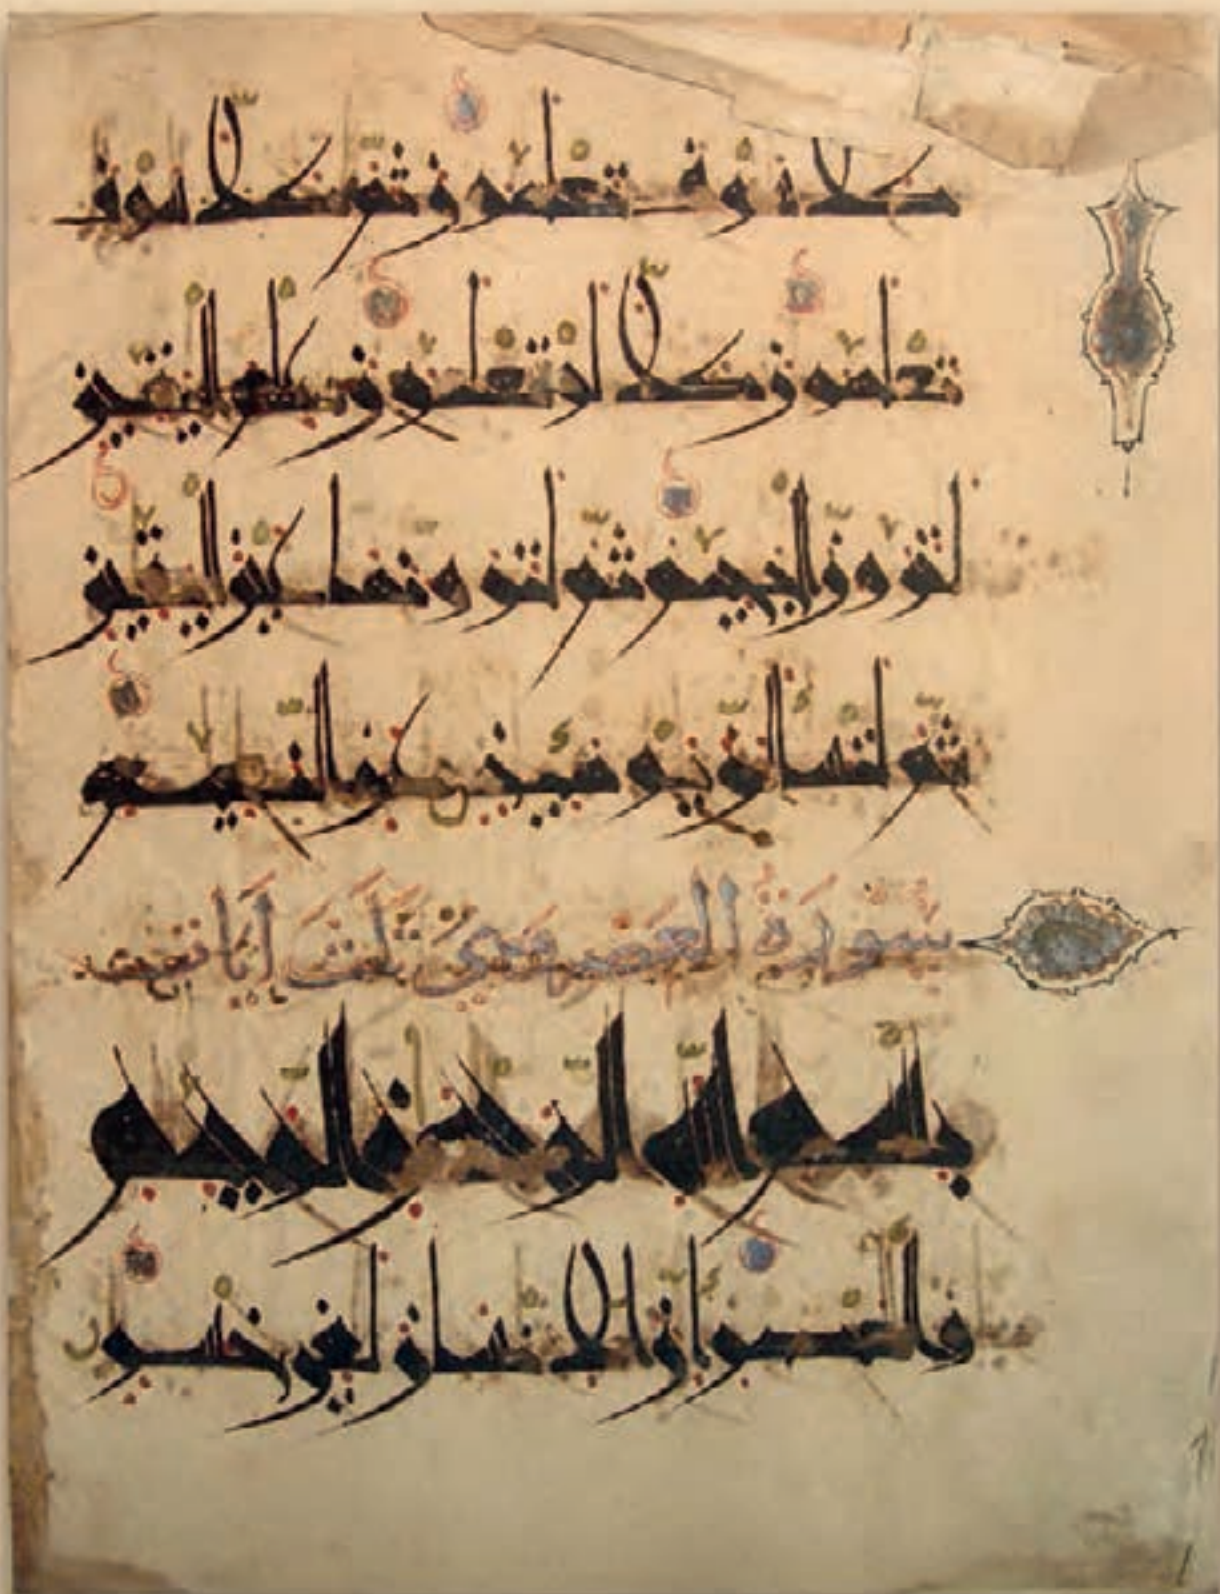 كلا سوف تعلمون ثم كلا سوف
تعلمون كلا لو تعلمون علم اليقين
لترون الجحيم ثم لترونها عين اليقين
ثم لتسلن يوميذ عن النعيم
سورة العصر وهي ثلث ايات
بسم الله الرحمن الرحيم
والعصر ان الانسان لفي خسر